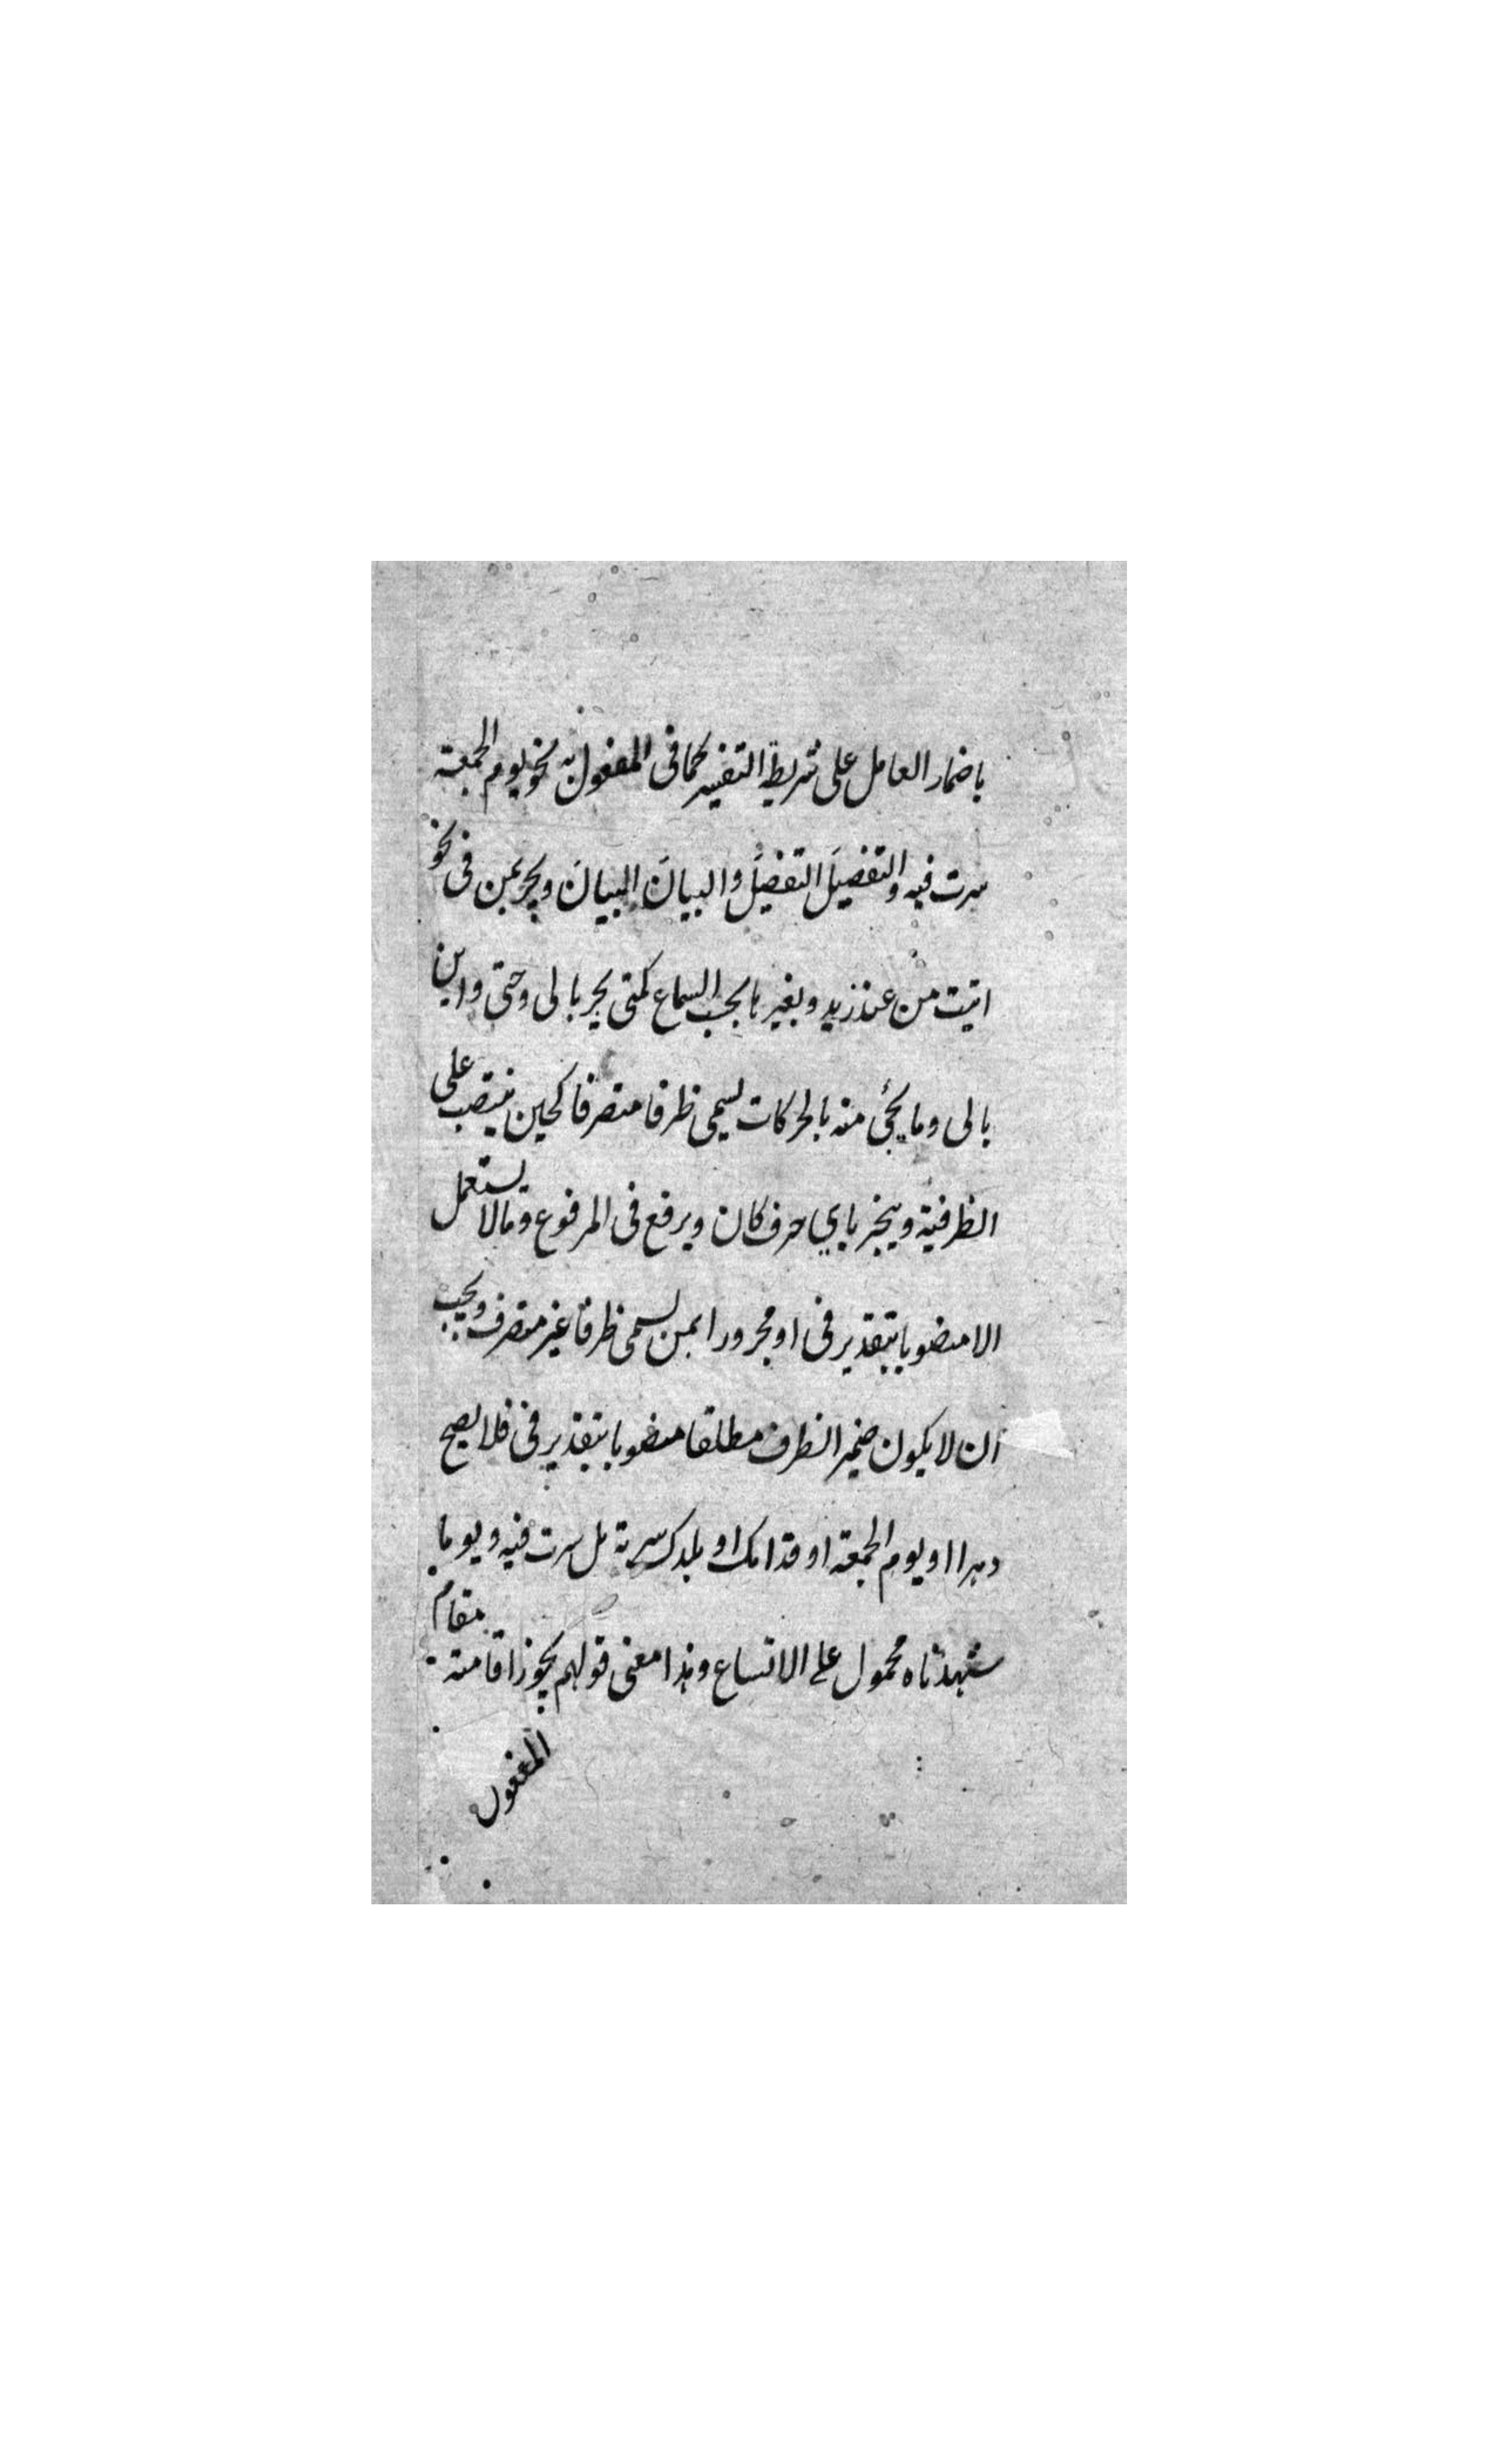 باضمار العامل على شريطة التفسير كما فى المفعول به نحو يوم الجمعة
سرت فيه والتفصيلَ التفصيلَ والبيانَ البيانَ ويجر بمن فى نحو
اتيت من عند زيد وبغير بحسب السماع كمتى يجر بالى وحتى واين
بالى وما يجئ منه بالحركات يسمى ظرفا متصرفا كحين ينتصب على
الظرفية وينجر باى حرف كان ويرفع فى المرفوع وما لا يستعمل
الا منصوبا بتقدير فى او مجرورا بمن يسمى ظرفا غير متصرف ويجب
ان لا يكون ضمير الظرف مطلقا منصوبا بتقدير فى فلا يصح
دهرا او يوم الجمعة او قدامك او بلدك سرته بل سرت فيه ويوما
شهدناه محمول على الاتساع وهذا معنى قولهم يجوز اقامته مقام
المفعول